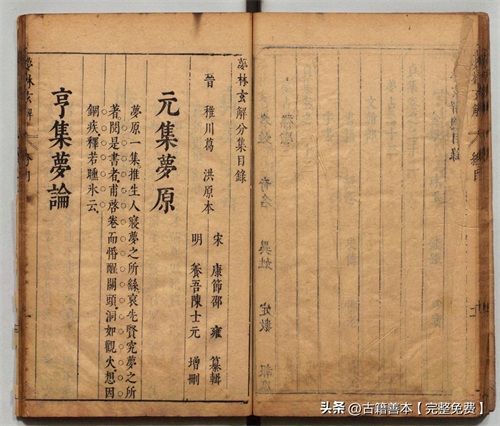 夣林玄解分集目錄
晉 稚川葛 洪原本
宋 康節邵 雍 纂輯
明 養吾陳士元 增刪
元集夢原
夢原一集推生人寢夢之所繇裒先賢究夢之所
著閱是書者甫啓卷而惛醒關頭洞如觀火想因
錮疾釋若氷云
亨集夢論
夣林玄解
头条 @古籍善本【完整免费】